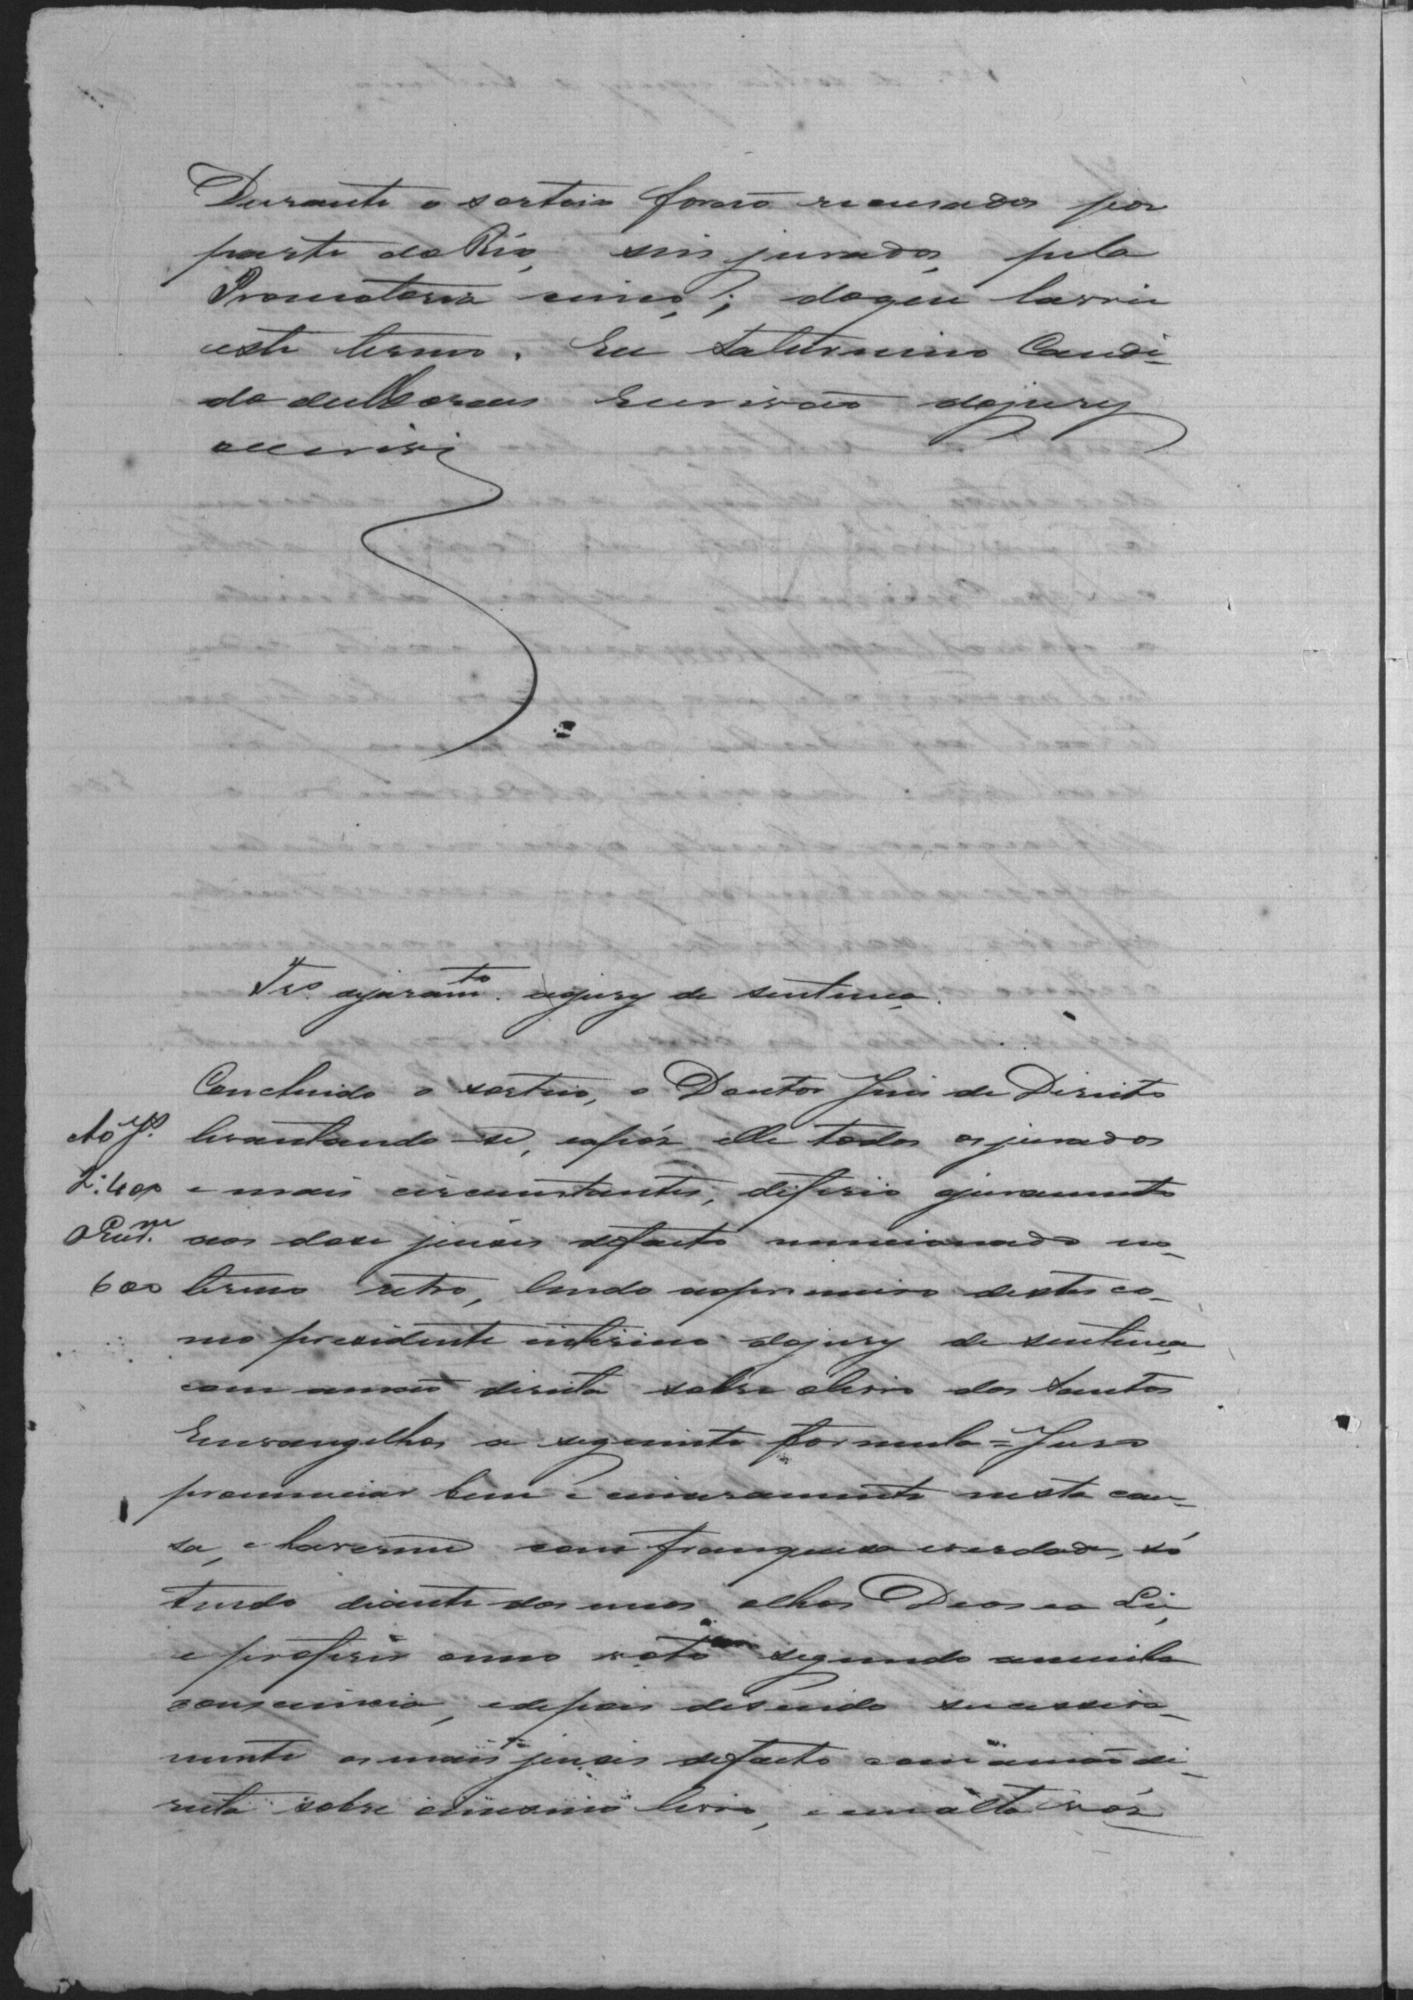 Durante o sorteio forão recusados por
parte do Réo, seis jurados, pela
Promotoria cinco; do que lavrei
este termo. Eu Saturnino Candi-
do de Moraes Escrivão do jury
escrevi
Tr.º do juram.to ao jury de sentença.
Concluido o sorteio, o Doutor Juis de Direito
Ao Js. levantando-se, e após elle todos os jurados
2:400 e mais circunstantes, deferio o juramento
aos dose juises de facto mencionado no
600 termo retro, lendo o primeiro destes co-
mo presidente interino do jury de sentença
com a mão direita sobre o livro dos Santos
Evangelhos a seguinte formula = Juro
pronunciar bem e sinceramente nesta cau-
sa, e haverme com franquesa e verdade, só
tendo diante dos meus olhos Deos e a Lei,
e proferir o meu voto segundo a minha
consciencia, e depois disendo successiva-
mente os mais juises de facto com a mão di-
reita sobre o mesmo livro, e em alta vós